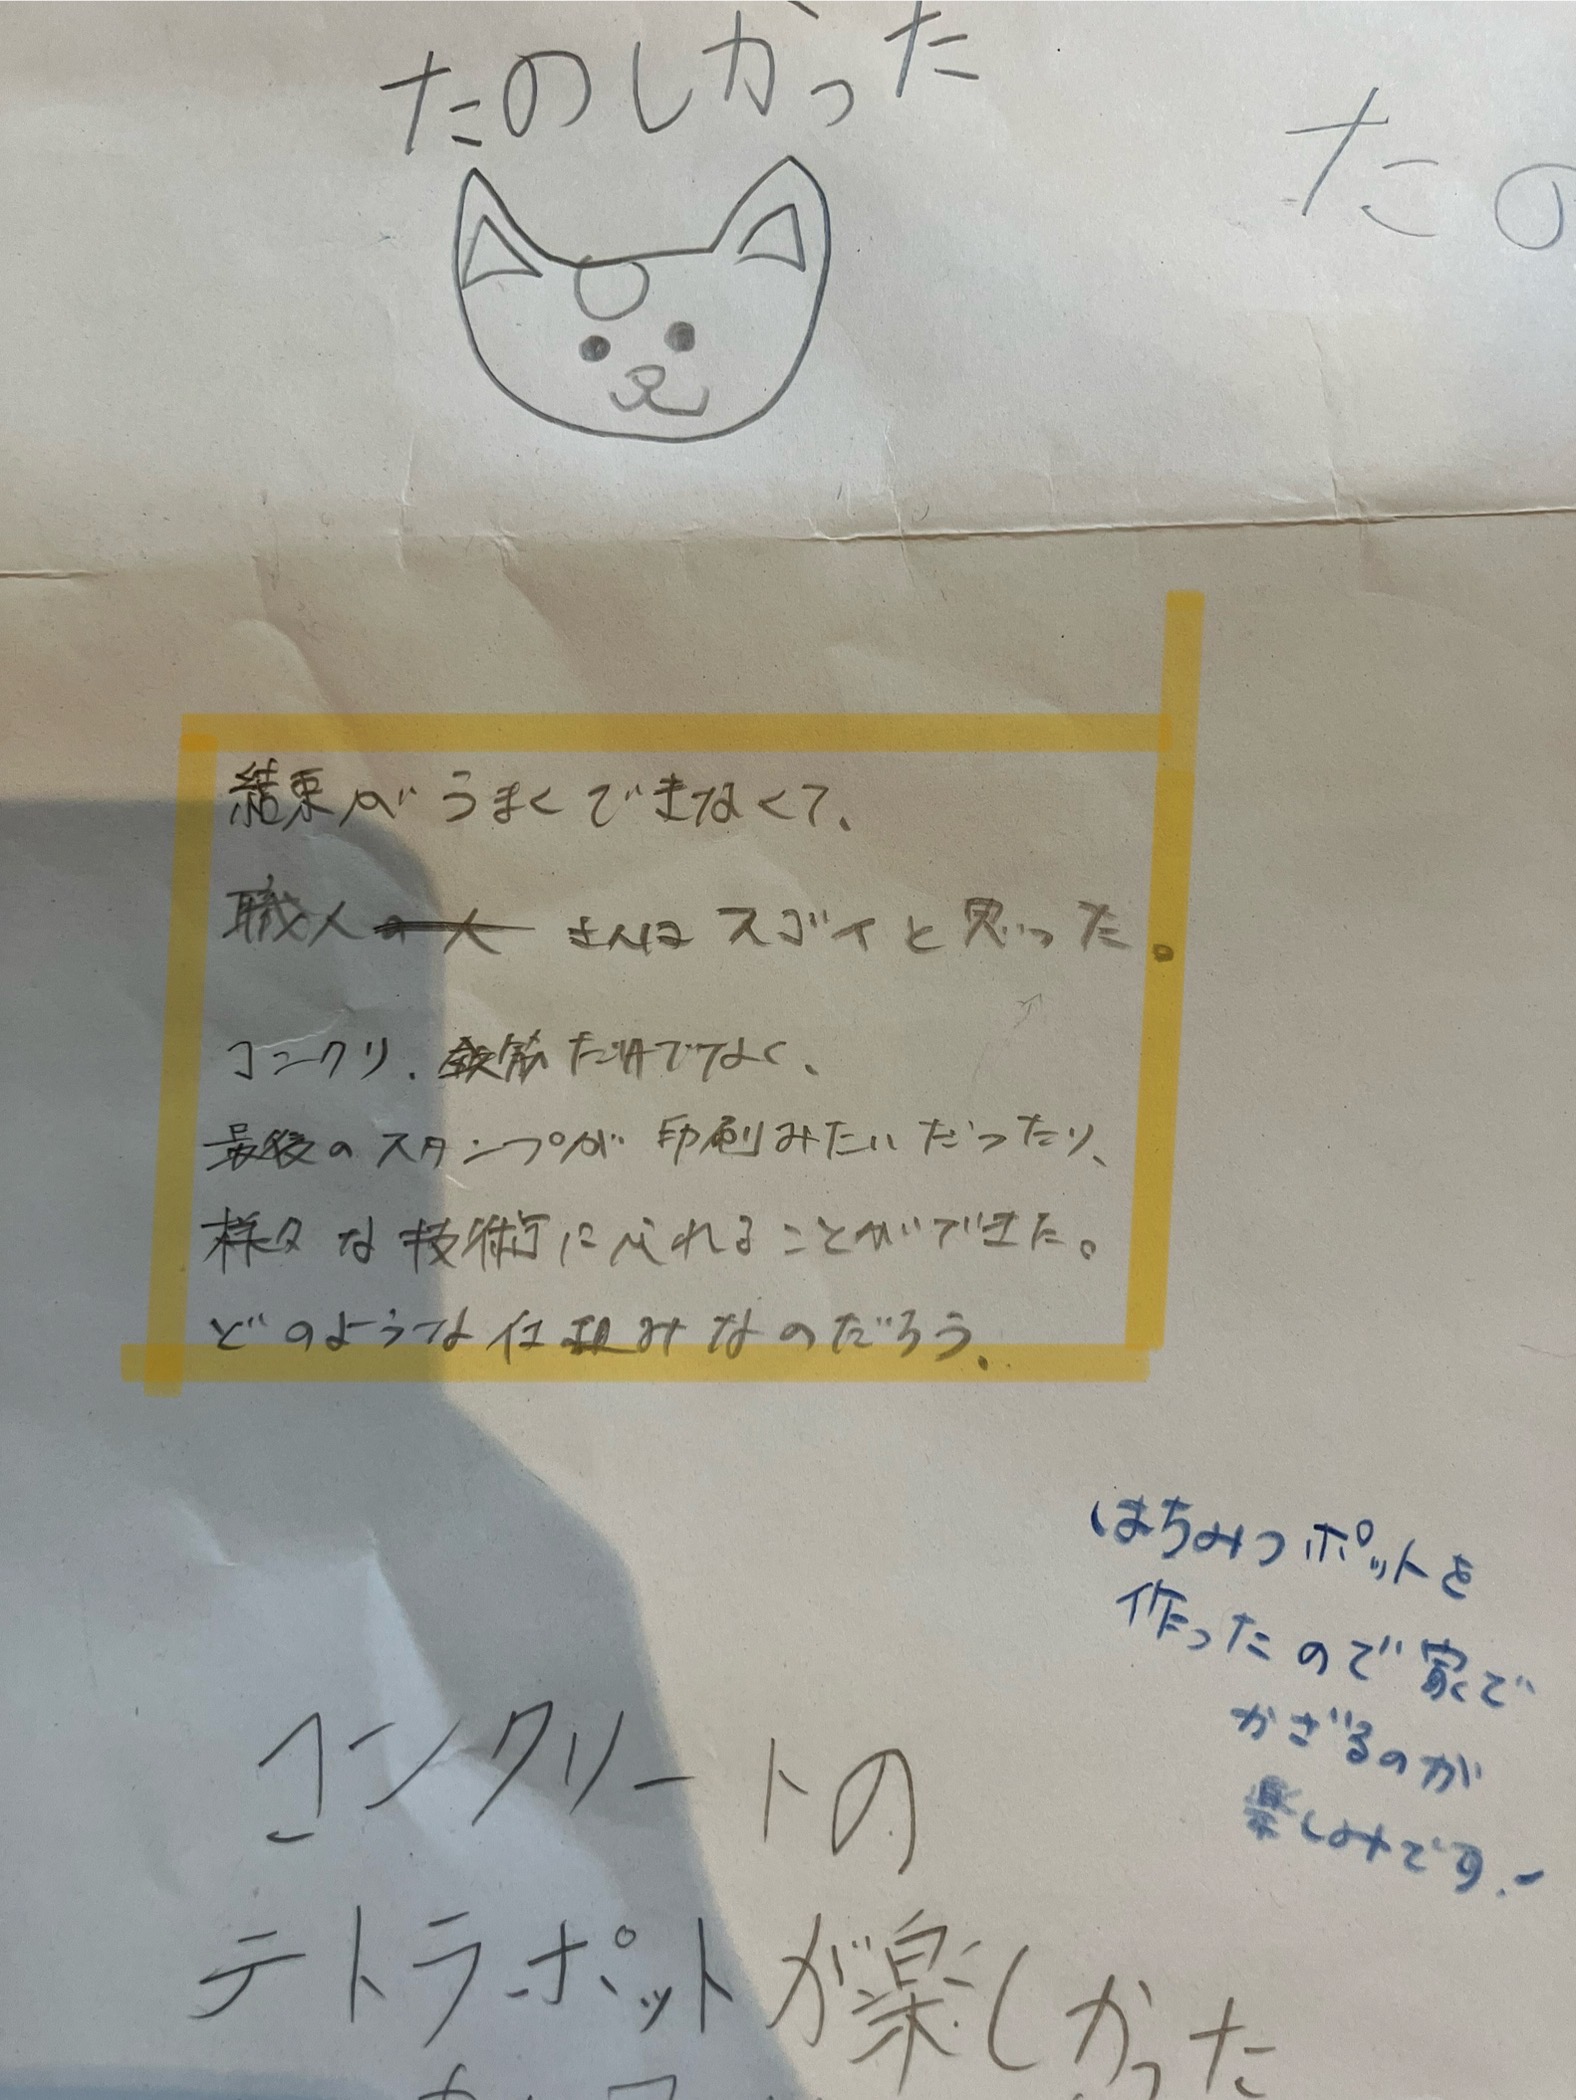 たのしかった
たの
結束がうまくできなくて、
職人さんはスゴイと思った。
コンクリ、鉄筋だけでなく、
最後のスタンプが印刷みたいだったり、
様々な技術にふれることができた。
どのような仕組みなのだろう。
はちみつポットを
作ったので家で
かざるのが
楽しみです。
コンクリートの
テトラポットが楽しかった